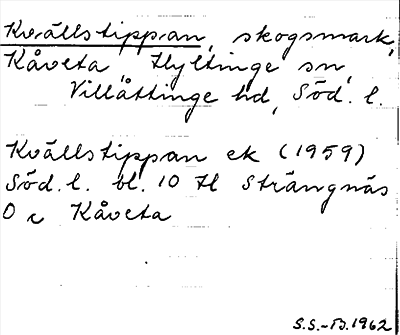 Kvällstippan, skogsmark,
Kåveta, Hyltinge sn,
Villåttinge hd, Söd. l.
Kvällstippan ek (1959)
Söd. l. bl. 10 Hl Strängnäs
O Kåveta
S.S.-B. 1962